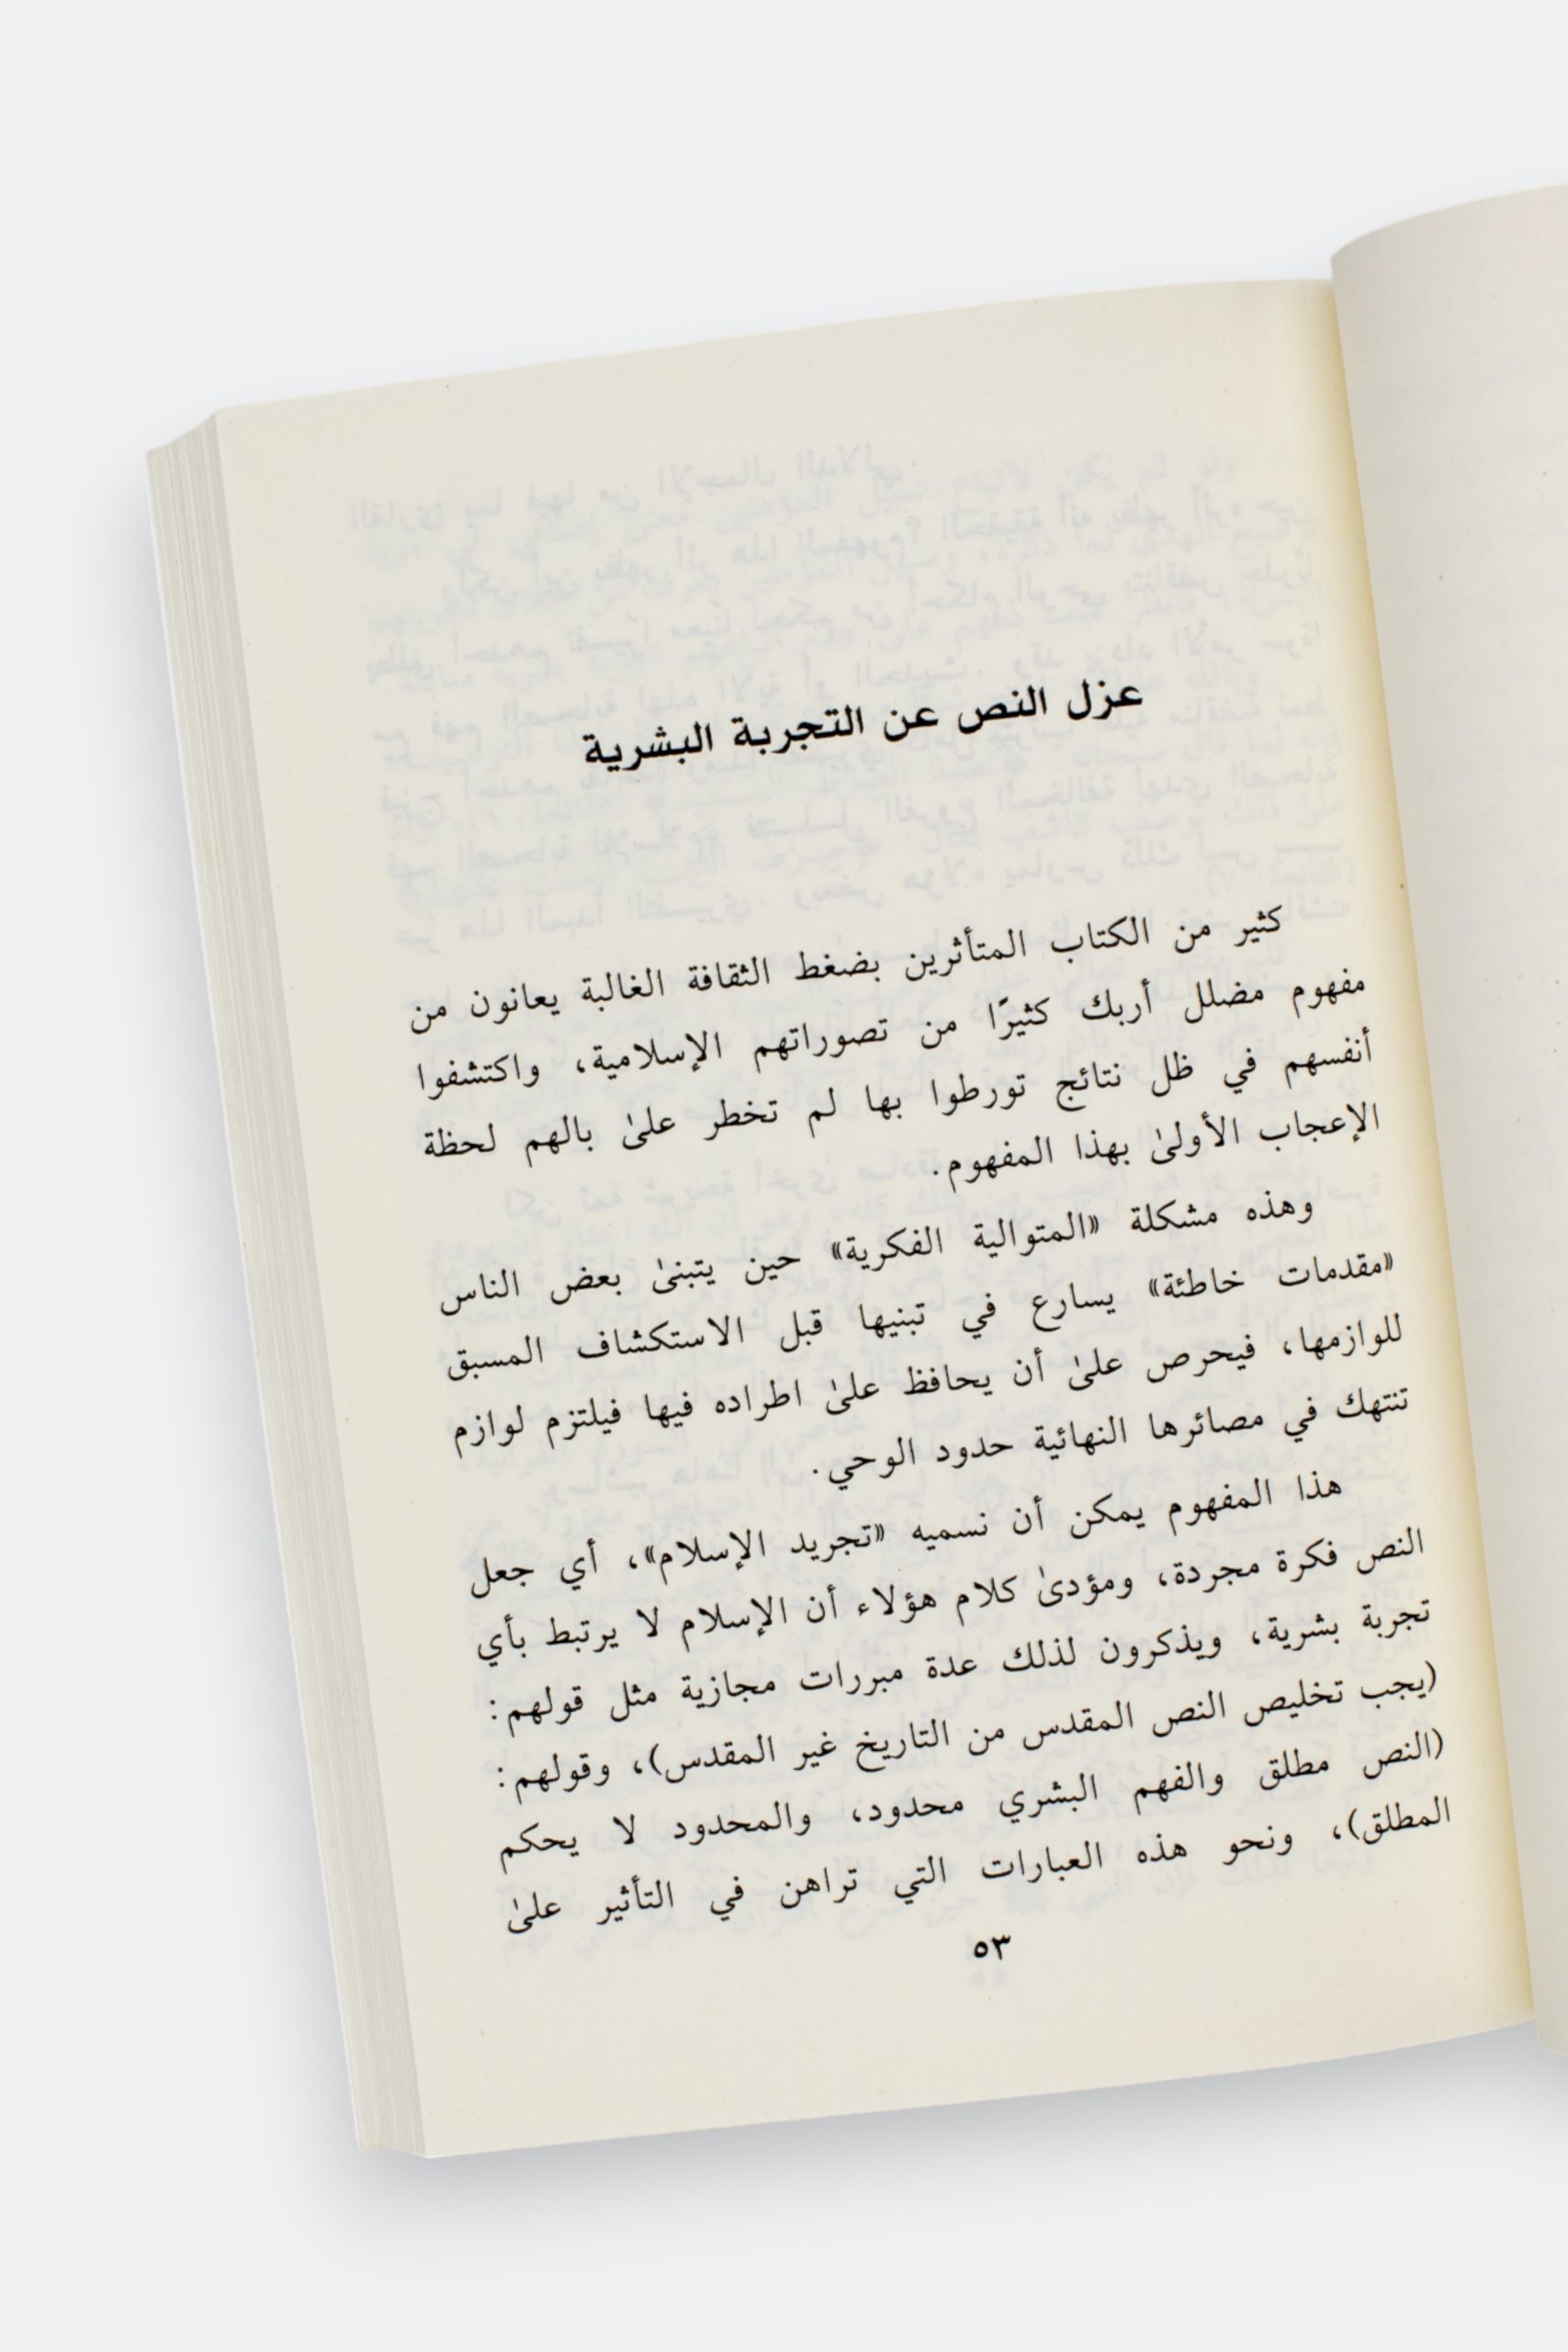 عزل النص عن التجربة البشرية
كثير من الكتاب المتأثرين بضغط الثقافة الغالبة يعانون من
مفهوم مضلل أربك كثيرًا من تصوراتهم الإسلامية، واكتشفوا
أنفسهم في ظل نتائج تورطوا بها لم تخطر علىٰ بالهم لحظة
الإعجاب الأولىٰ بهذا المفهوم.
وهذه مشكلة «المتوالية الفكرية» حين يتبنىٰ بعض الناس
«مقدمات خاطئة» يسارع في تبنيها قبل الاستكشاف المسبق
للوازمها، فيحرص علىٰ أن يحافظ علىٰ اطراده فيها فيلتزم لوازم
تنتهك في مصائرها النهائية حدود الوحي.
هذا المفهوم يمكن أن نسميه «تجريد الإسلام»، أي جعل
النص فكرة مجردة، ومؤدىٰ كلام هؤلاء أن الإسلام لا يرتبط بأي
تجربة بشرية، ويذكرون لذلك عدة مبررات مجازية مثل قولهم:
(يجب تخليص النص المقدس من التاريخ غير المقدس)، وقولهم:
(النص مطلق والفهم البشري محدود، والمحدود لا يحكم
المطلق)، ونحو هذه العبارات التي تراهن في التأثير علىٰ
٥٣